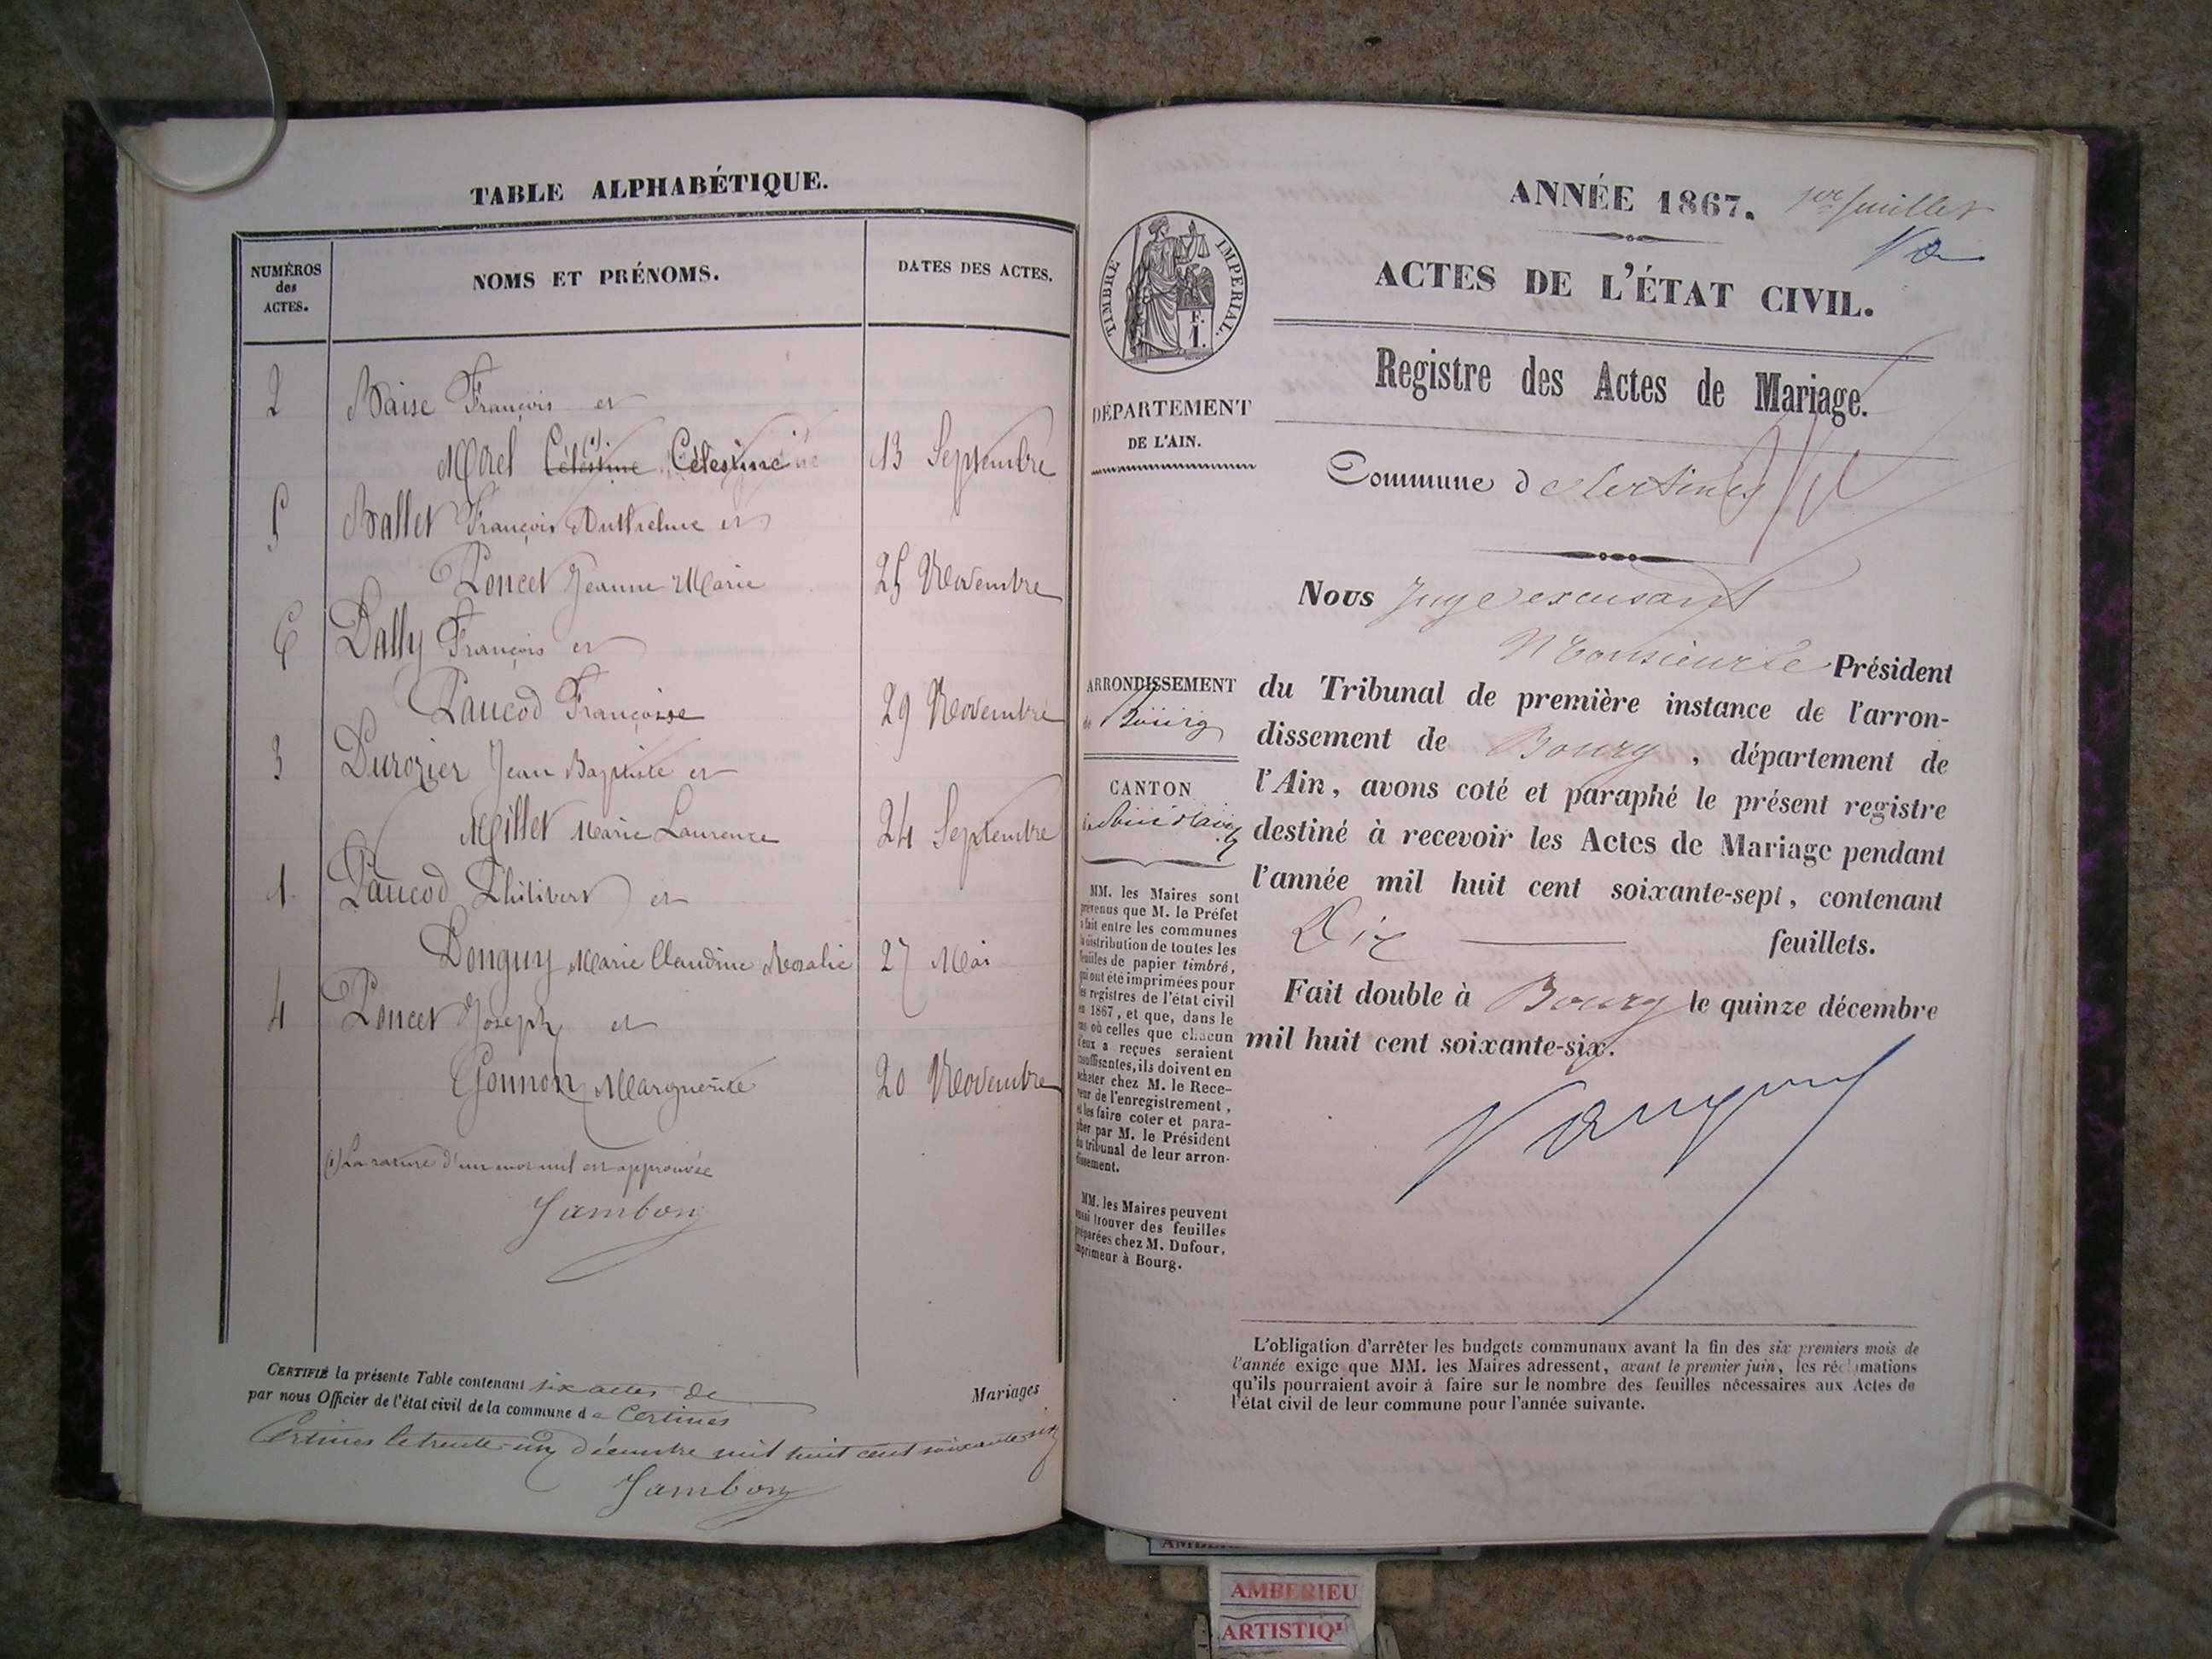 TABLE ALPHABÉTIQUE.
NUMÉROS
des
ACTES.
NOMS ET PRÉNOMS.
DATES DES ACTES.
2 Baise François et
Morel Célestine (1) Célestine 13 Septembre
5 Ballet François Anthelme et
Poncet Jeanne Marie 25 Novembre
6 Dally François et
Paucod Françoise 29 Novembre
3 Durozier Jean Baptiste et
Millet Marie Laurence 24 Septembre
1 Paucod Philibert et
Donguy Marie Claudine Rosalie 27 Mai
4 Poncet Joseph et
Gonnon Marguerite 20 Novembre
(1) La rature d'un mot nul est approuvée
Jambon
CERTIFIÉ la présente Table contenant six actes de Mariages
par nous Officier de l'état civil de la commune de Certines
Certines le trente-un décembre mil huit cent soixante six
Jambon
ANNÉE 1867. 1er feuillet
ACTES DE L'ÉTAT CIVIL.
Registre des Actes de Mariage.
Commune d Certines
TIMBRE IMPÉRIAL.
F.
1.
DÉPARTEMENT
DE L'AIN.
ARRONDISSEMENT
de Bourg
CANTON
MM. les Maires sont
prévenus que M. le Préfet
a fait entre les communes
la distribution de toutes les
feuilles de papier timbré,
qui ont été imprimées pour
les registres de l'état civil
en 1867, et que, dans le
cas où celles que chacun
d'eux a reçues seraient
insuffisantes, ils doivent en
acheter chez M. le Rece-
veur de l'enregistrement,
et les faire coter et para-
pher par M. le Président
du tribunal de leur arron-
dissement.
MM. les Maires peuvent
aussi trouver des feuilles
préparées chez M. Dufour,
imprimeur à Bourg.
Nous Juge excusant
Monsieur le Président
du Tribunal de première instance de l'arron-
dissement de Bourg, département de
l'Ain, avons coté et paraphé le présent registre
destiné à recevoir les Actes de Mariage pendant
l'année mil huit cent soixante-sept, contenant
Dix feuillets.
Fait double à Bourg le quinze décembre
mil huit cent soixante-six.
L'obligation d'arrêter les budgets communaux avant la fin des six premiers mois de
l'année exige que MM. les Maires adressent, avant le premier juin, les réclamations
qu'ils pourraient avoir à faire sur le nombre des feuilles nécessaires aux Actes de
l'état civil de leur commune pour l'année suivante.
AMBERIEU
ARTISTIQ